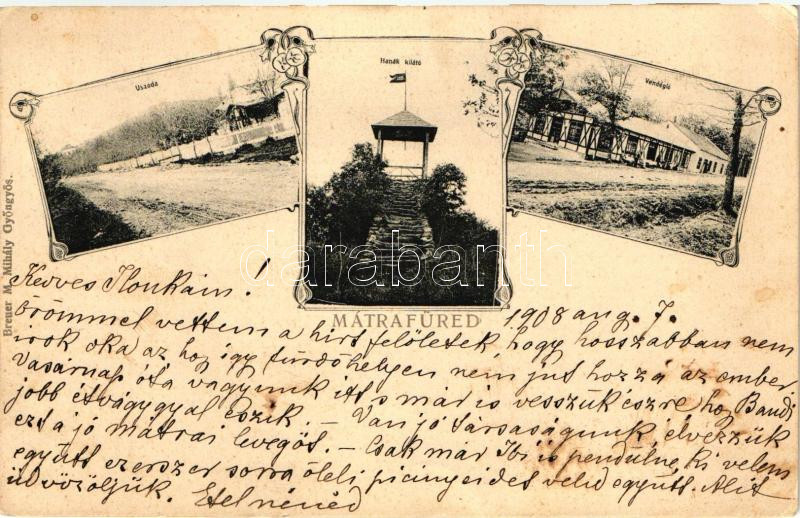 Uszoda
Hanák kilátó
Vendéglő
Breuer M. Mihály Gyöngyös.
darabanth
MÁTRAFÜRED
Kedves Ilonkám!
1908 aug. 7.
Örömmel vettem a hirt felőletek, hogy hosszabban nem
irok oka az hog így fürdőhelyen nem jut hozzá az ember
Vasárnap óta vagyunk itt s már is vesszük észre hog Bandi
jobb étvágygyal eszik. – Van jó társaságunk élvezzük
ezt a jó mátrai levegőt. – Csak már Ibi is pendülne ki velem
együtt ezerszer sorra ölel picinyeidet veled együtt. Alit
üdvözöljük. Etel nénéd